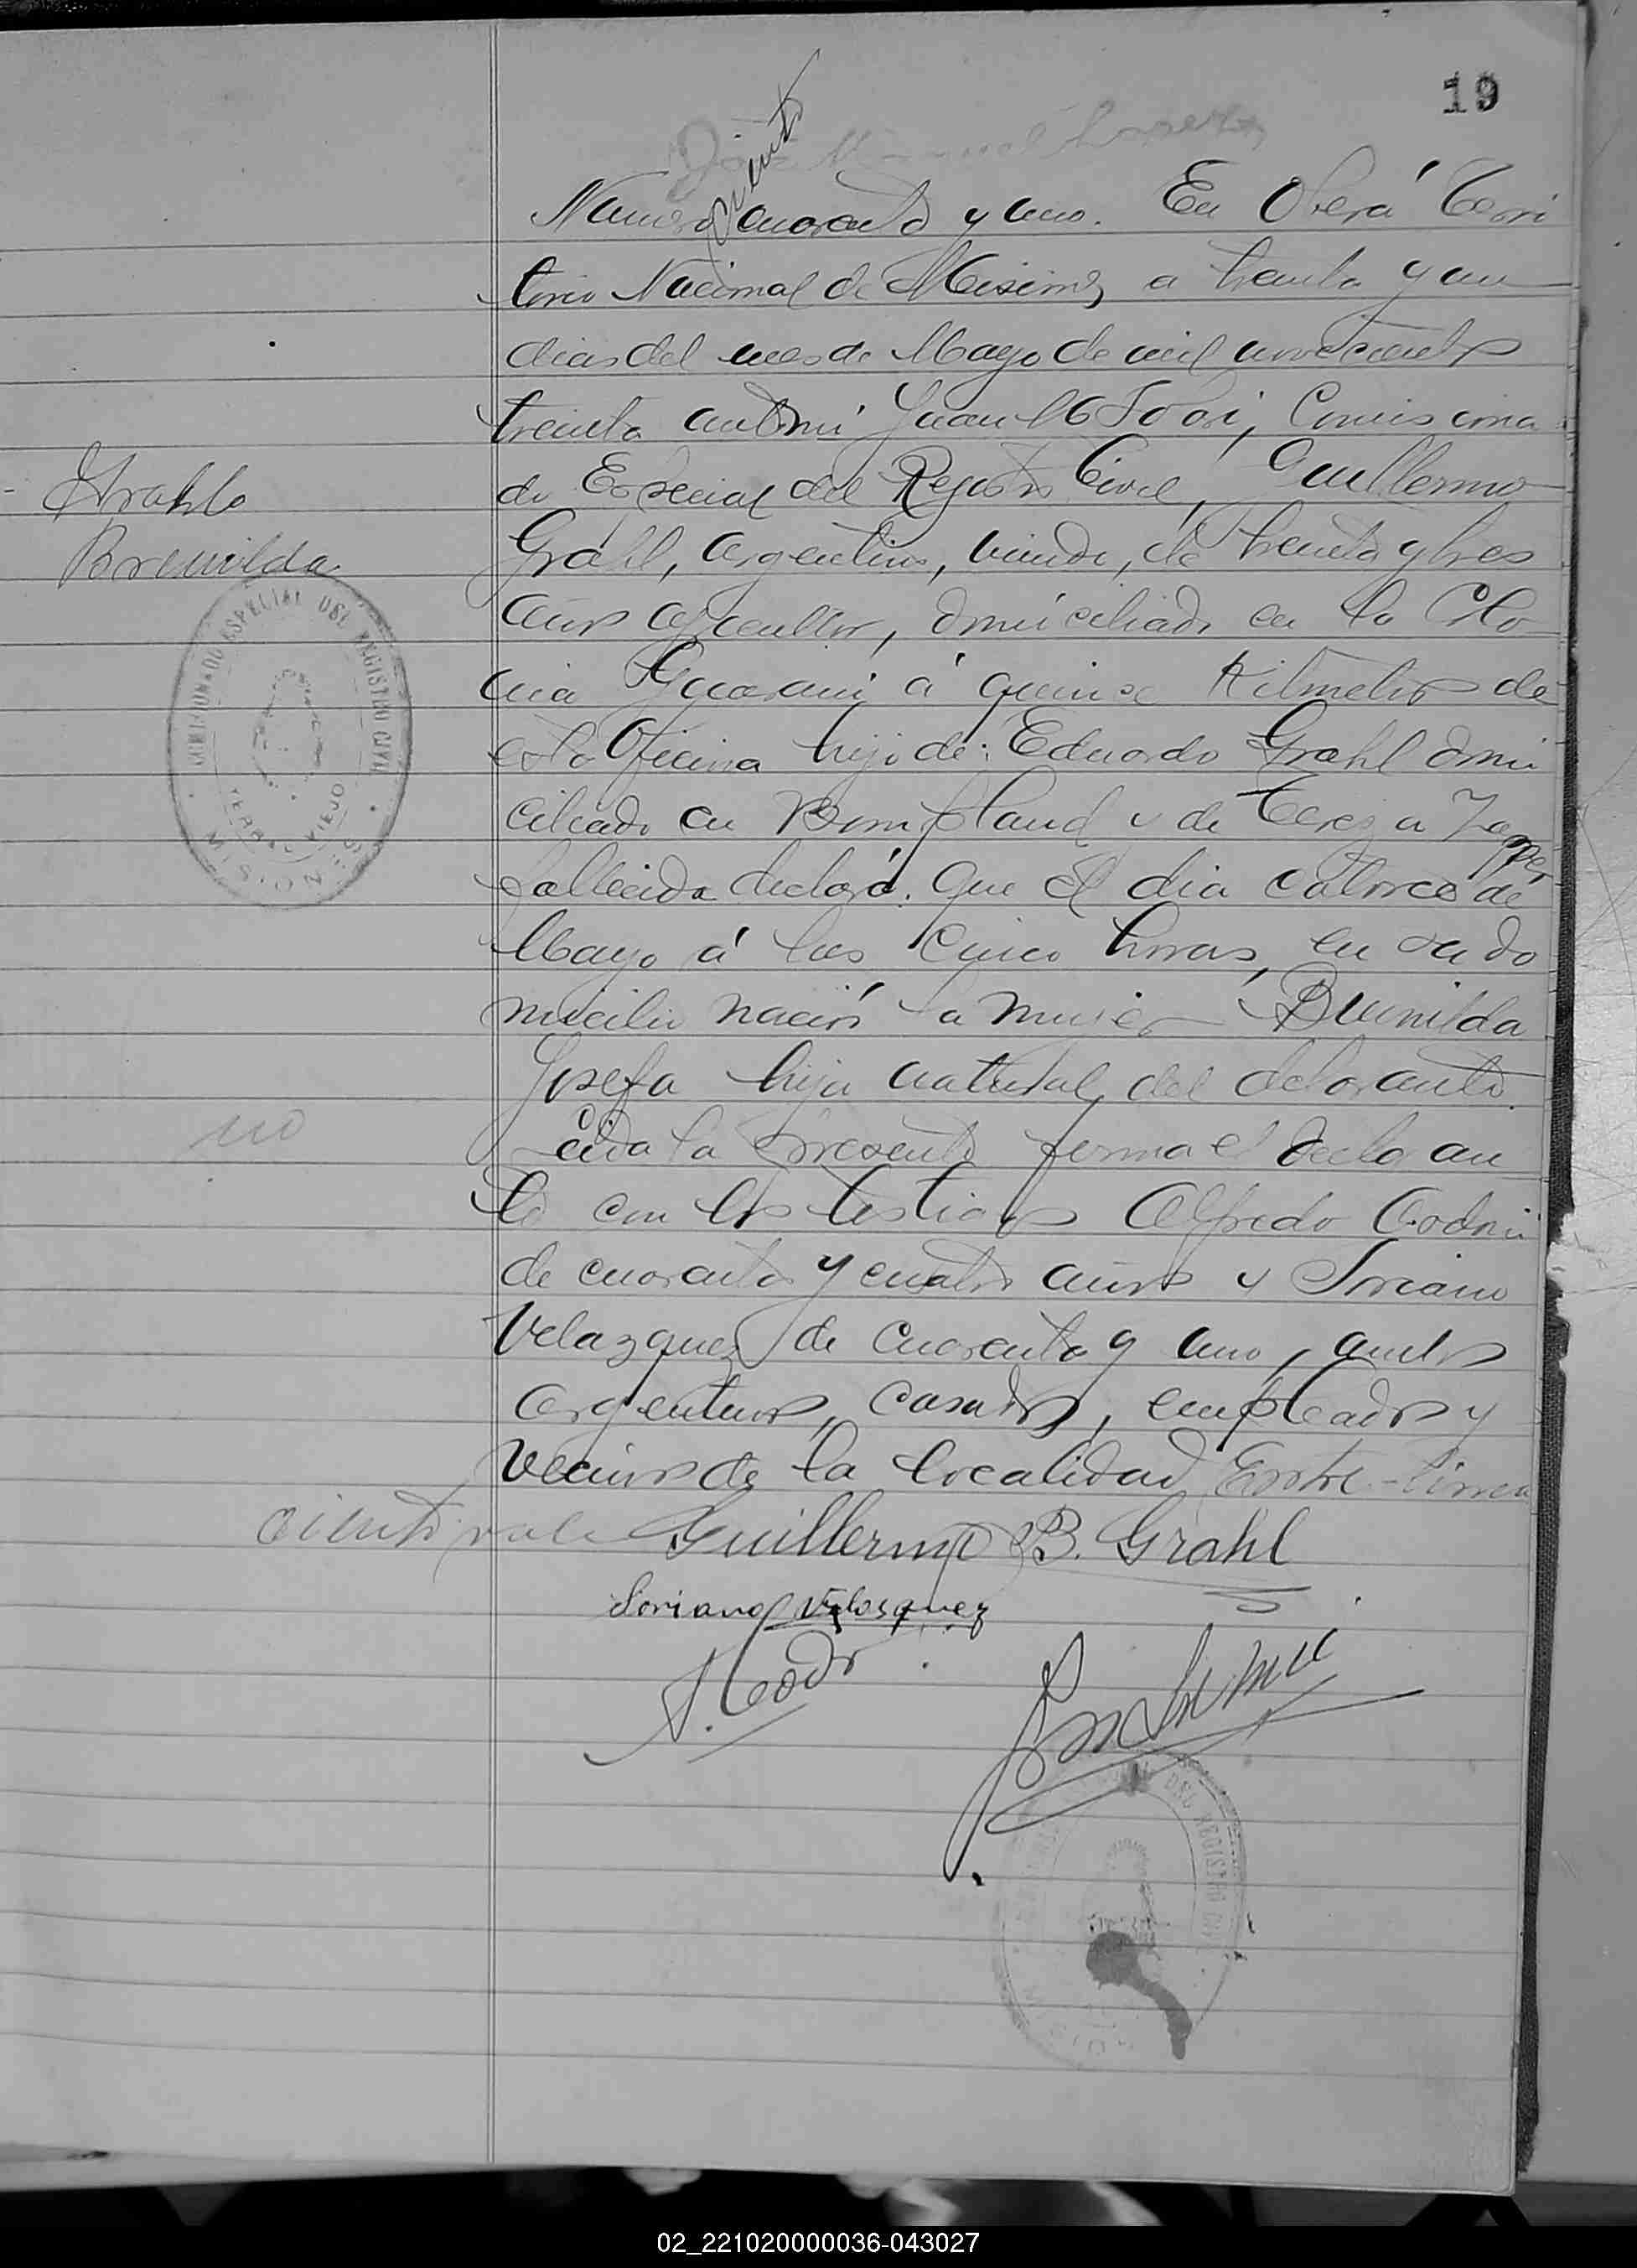 19
ciento
Numero cuarenta y uno. En Oberá Terri
torio Nacional de Misiones a treinta y un
dias del mes de Mayo de mil novecientos
treinta ante mi Juan B Comisiona
do Especial del Registro Civil, Guillermo
Grahl, argentino, viudo, de treinta y tres
años agricultor, domiciliado en la Colo
nia Guarani á quinse Kilometros de
esta Oficina hijo de: Eduardo Grahl domi
ciliado en Bompland y de Tereza
fallecida declaró: Que el dia catorce de
Mayo á las cinco horas, en su do
micilio nació la mujer Brunilda
Josefa hija natural del declarante.
Leida la presente firma el declaran
te con los testigos Alfredo
de cuarenta y cuatro años y Soriano
Velazquez de cuarenta y uno, ambos
argentinos, casados, empleados y
vecinos de la localidad Entre-linea
ciento vale
Grahl
Brenilda
COMISIONADO ESPECIAL DEL REGISTRO CIVIL
YERBAL VIEJO
MISIONES
no
Guillermo B. Grahl
Soriano Velasquez
DEL REGISTRO
02_221020000036-043027